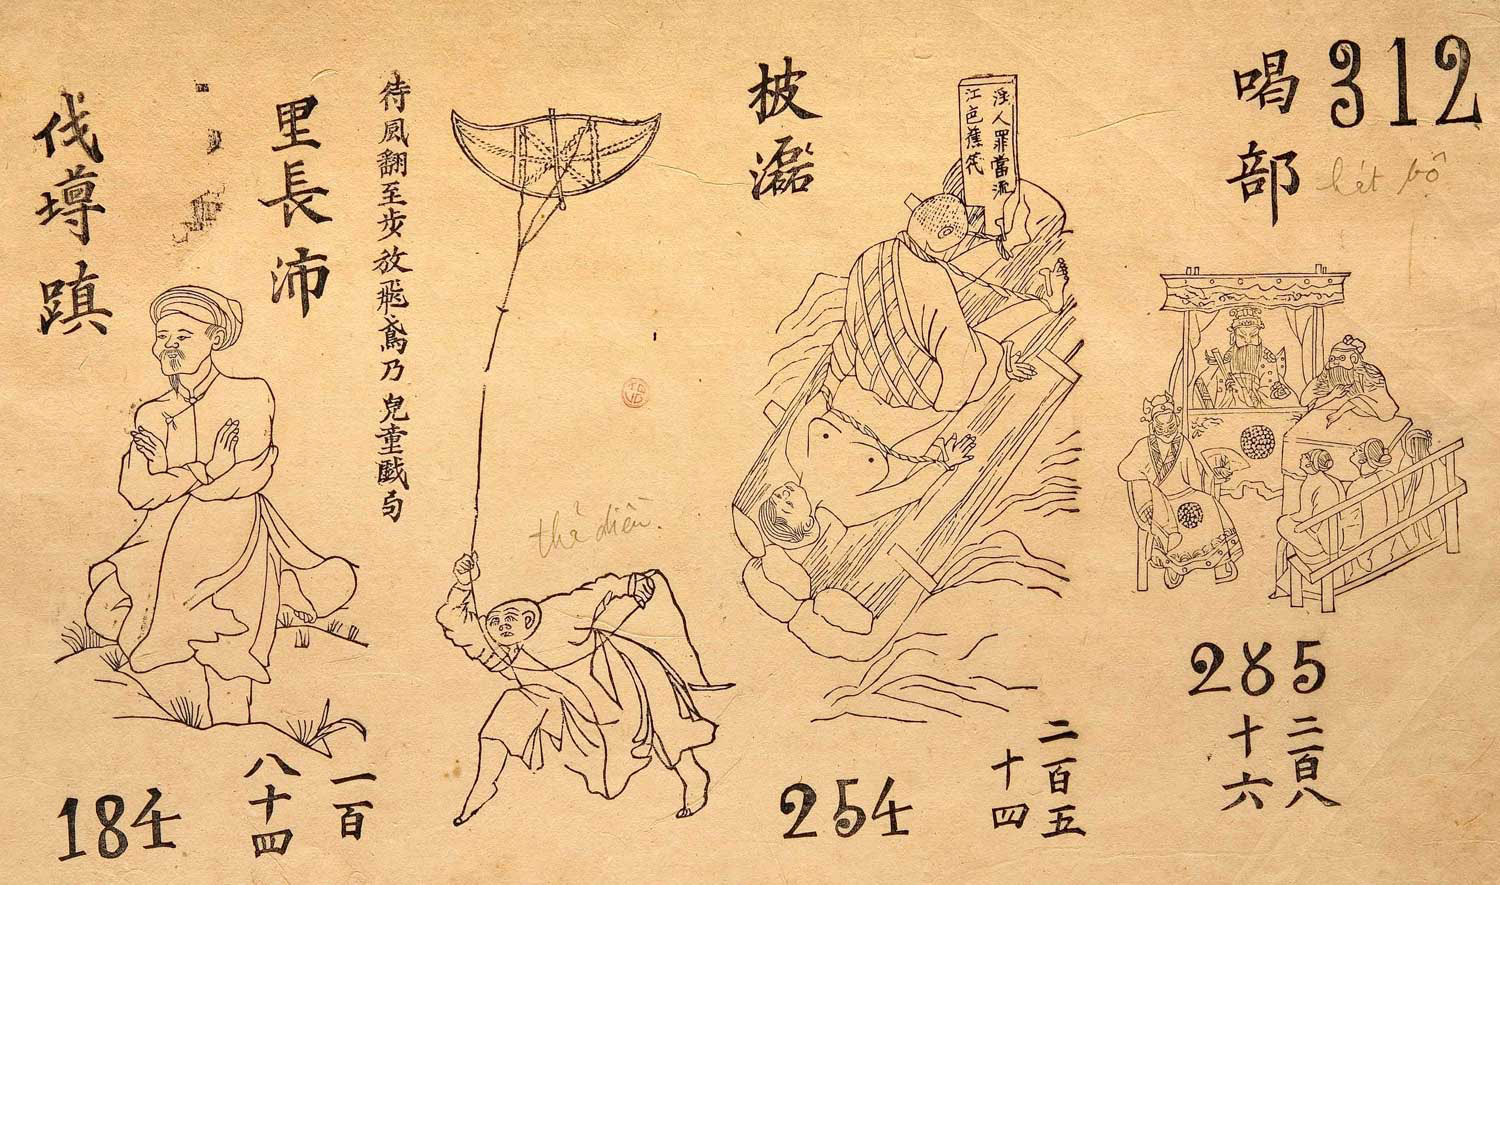 312
喝部
hát bộ
285
二百八
十六
披灑
淫人罪當流
江邑蕉筏
254
二百五
十四
待風翻至步放飛鳶乃兒童戲句
thả diều
里長沛
伐墫蹎
184
一百
八十四